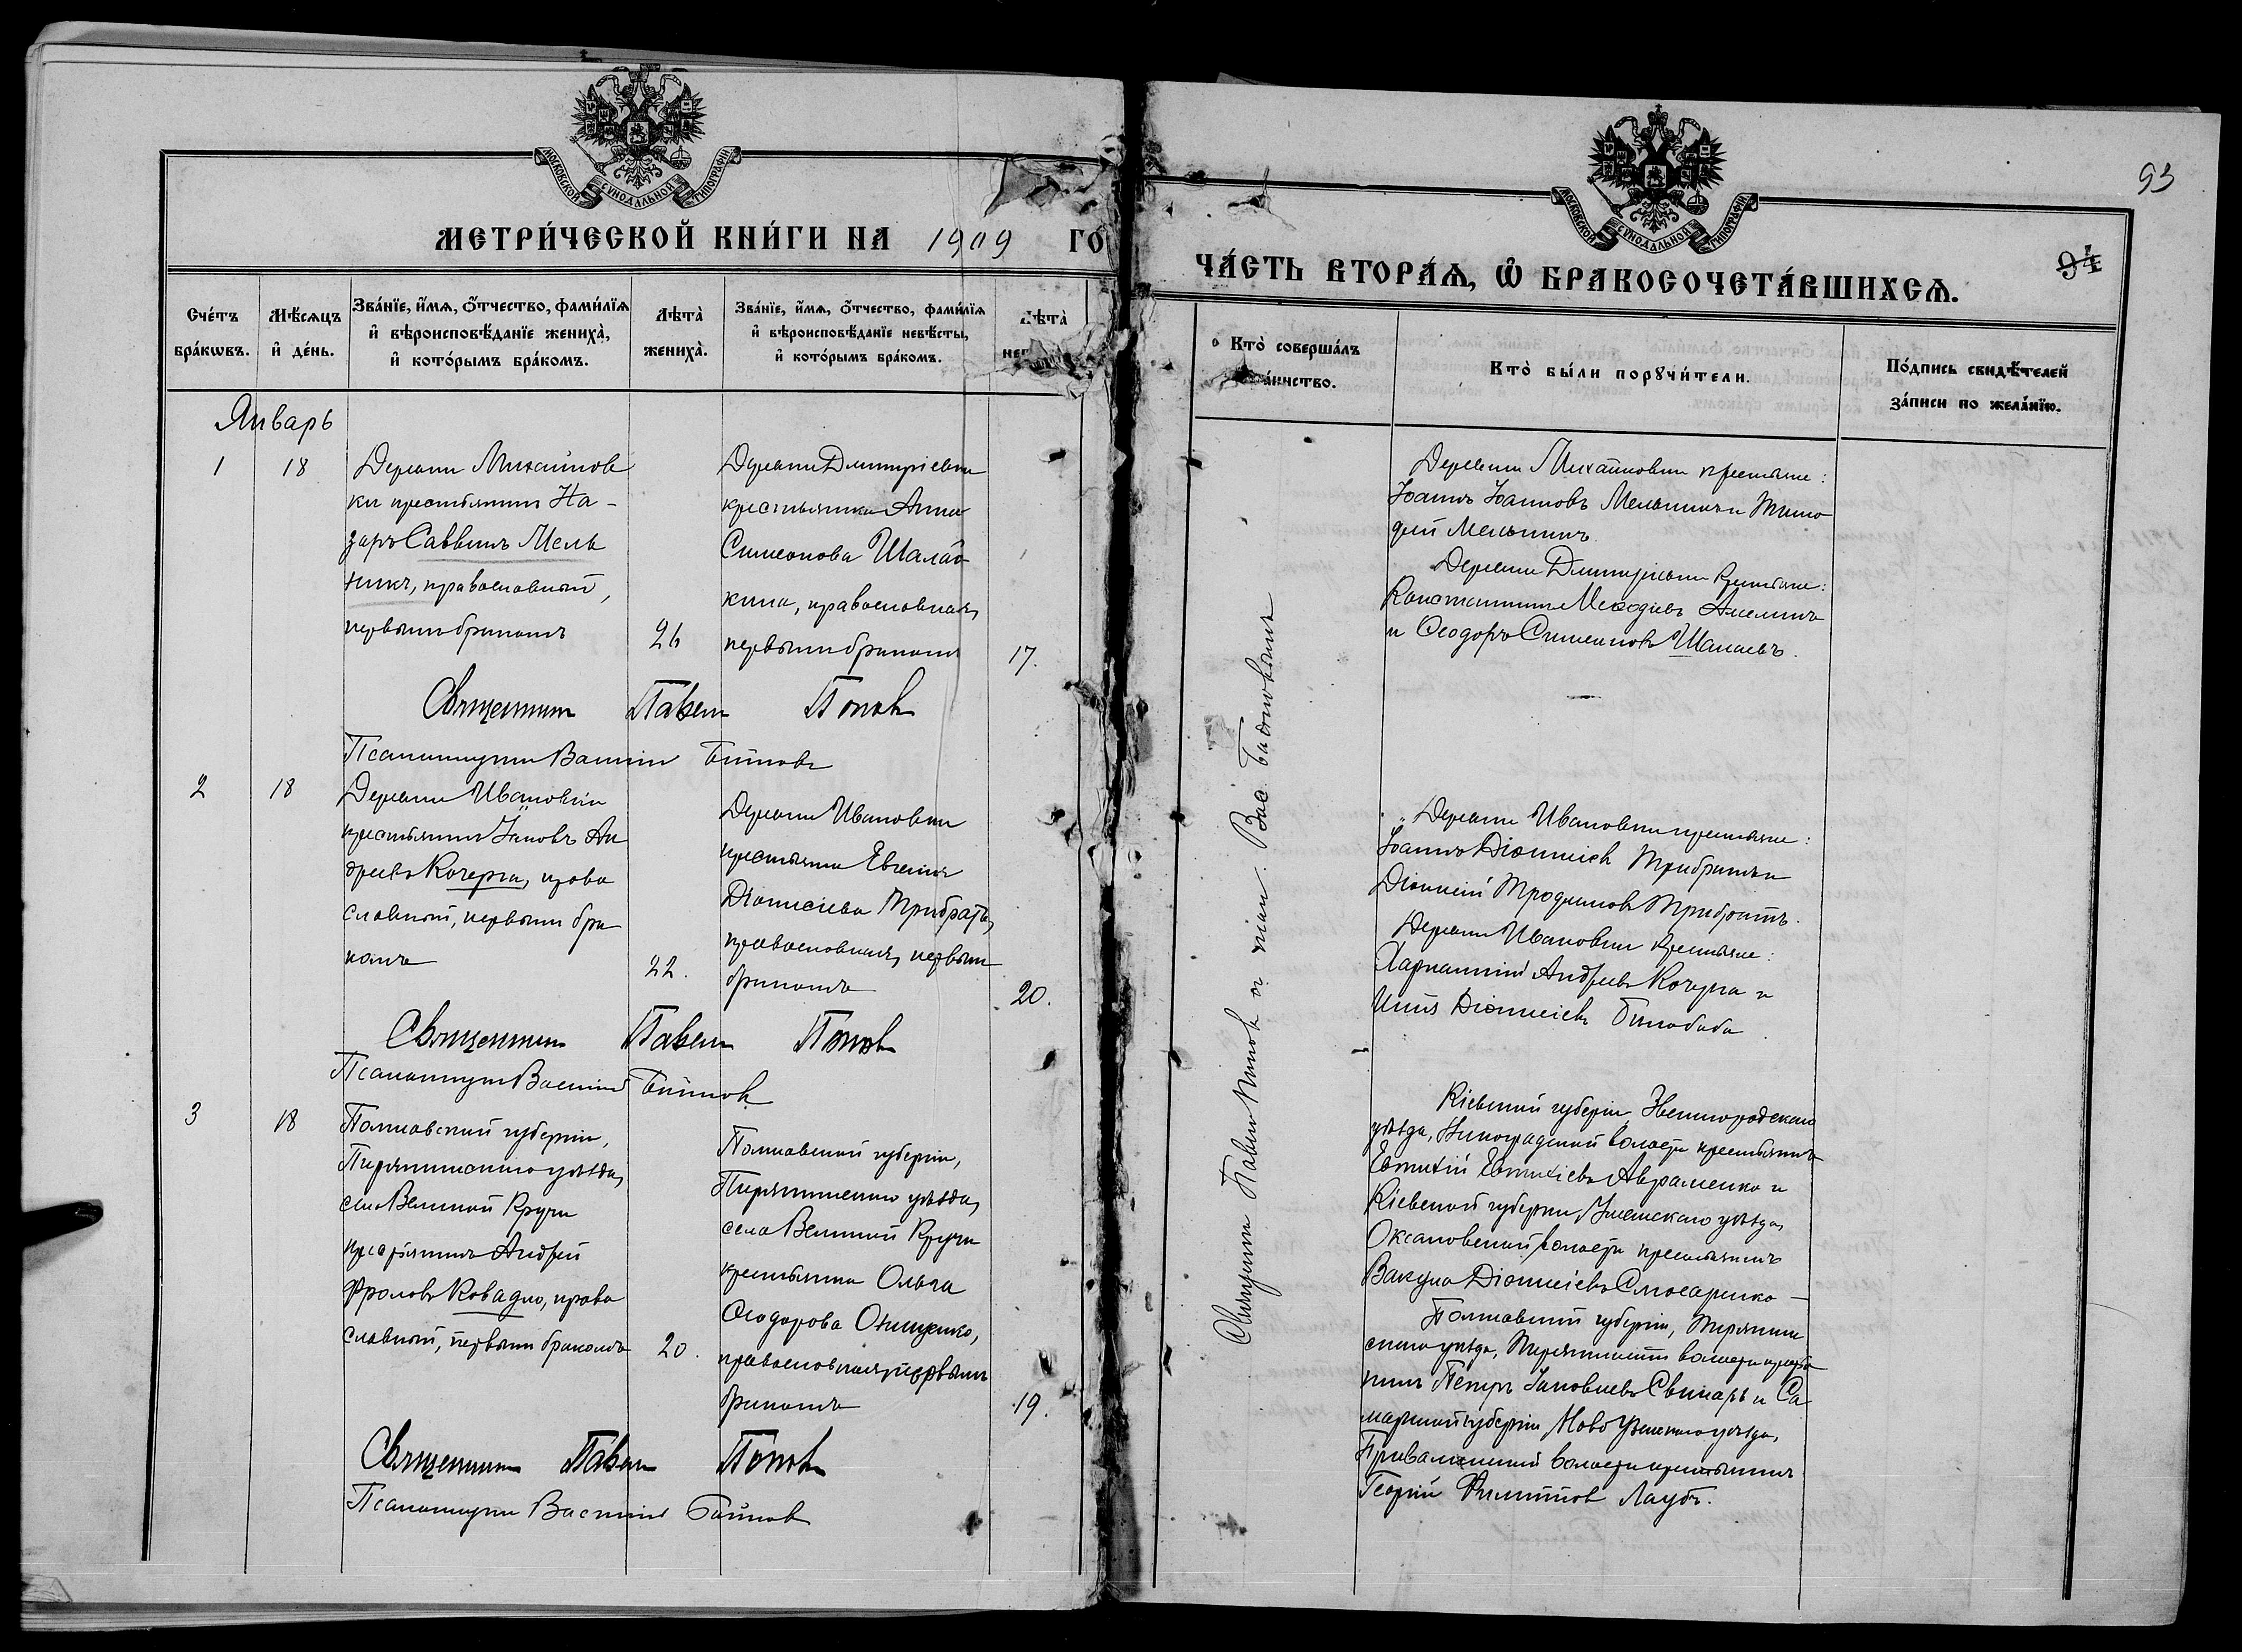 МОСКОВСКОЙ СѴНОДАЛЬНОЙ ТИПОГРАФІИ
МЕТРИ́ЧЕСКОЙ КНИ́ГИ НА 1909 ГО
Сче́тъ бра́кѡвъ.
Мѣ́сяцъ и҆ де́нь.
Зва́нїе, и҆́мѧ, ѻ҆́тчество, фами́лїѧ
и҆ вѣроисповѣ́данїе жениха̀,
и҆ кото́рымъ бра́комъ.
Лѣта̀ жениха̀.
Зва́нїе, и҆́мѧ, ѻ҆́тчество, фами́лїѧ
и҆ вѣроисповѣ́данїе невѣ́сты,
и҆ кото́рымъ бра́комъ.
Лѣта̀
Январь
1
18
Деревни Михайлов
ки крестьянинъ На-
заръ Саввинъ Мель
никъ, православный,
первымъ бракомъ
26
Деревни Дмитріевки
крестьянка Анна
Симеонова
кина, православная,
первымъ бракомъ
17.
Священникъ Павелъ Поповъ
Псаломщикъ Василій
2
18
Деревни Ивановки
крестьянинъ Іаковъ Ан
дреевъ Кочерга, право
славный, первымъ бра
комъ
22.
Деревни Ивановки
крестьянка Евгенія
Діонисіева Трибратъ,
православная, первымъ
бракомъ
20.
Священникъ Павелъ Поповъ
Псаломщикъ Василій
3
18
Полтавской губерніи,
Пирятинскаго уѣзда,
села Великой Кручи
крестьянинъ Андрей
Фроловъ Ковадло, право
славный, первымъ бракомъ
20.
Полтавской губерніи,
Пирятинскаго уѣзда,
села Великой Кручи
крестьянка Ольга
Ѳеодорова Онищенко,
православная, первымъ
бракомъ
19.
Священникъ Павелъ Поповъ
Псаломщикъ Василій
93
94
МОСКОВСКОЙ СѴНОДАЛЬНОЙ ТИПОГРАФІИ
ЧА́СТЬ ВТОРА́Ѧ, Ѡ҆ БРАКОСОЧЕТА́ВШИХСѦ.
Кто̀ соверша́лъ
Кто̀ бы́ли порꙋчи́тели.
По́дпись свидѣ́телей
за́писи по жела́нїю.
Священникъ Павелъ Поповъ съ псал. Вас.
Деревни Михайловки крестьяне:
Іоаннъ Іоанновъ Мельникъ и Тимо
ѳей Мельникъ.
Деревни Дмитріевки крестьяне:
Константинъ Меѳодіевъ
и Ѳеодоръ Симеоновъ
Деревни Ивановки крестьяне:
Іоаннъ Діонисіевъ Трибратъ и
Діонисій Трибратъ.
Деревни Ивановки крестьяне:
Харлампій Андреевъ Кочерга и
Діонисіевъ Билобаба.
Кіевской губерніи, Звенигородскаго
уѣзда, волости крестьянинъ
Евтихій Евтихіевъ Авраменко и
Кіевской губерніи, Уманскаго уѣзда,
волости крестьянинъ
Вакула Діонисіевъ Слюсаренко
Полтавской губерніи, Пирятин
скаго уѣзда, Пирятинской волости крестья
нинъ Петръ Іаковлевъ Свинарь и Са
марской губерніи Ново Узенскаго уѣзда,
Привалненской волости крестьянинъ
Георгій Филипповъ Лаубъ.